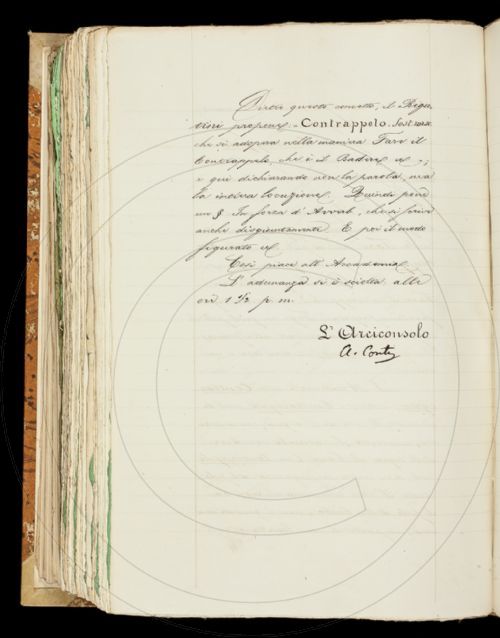 Dietro questo concetto, il Rigu-
tini propone: - Contrappelo. Sost. masc.
che si adopera nella maniera Fare il
Contrappelo, che è il Radere ec -;
e qui dichiarando non la parola, ma
la intera locuzione. Quindi porre
un § In forza d'Avverb., che si scrive
anche disgiuntamente. E poi il modo
figurato ec
Così piace all'Accademia.
L'adunanza si è sciolta alle
ore 1 1/2 p. m.
L'Arciconsolo
A. Conti